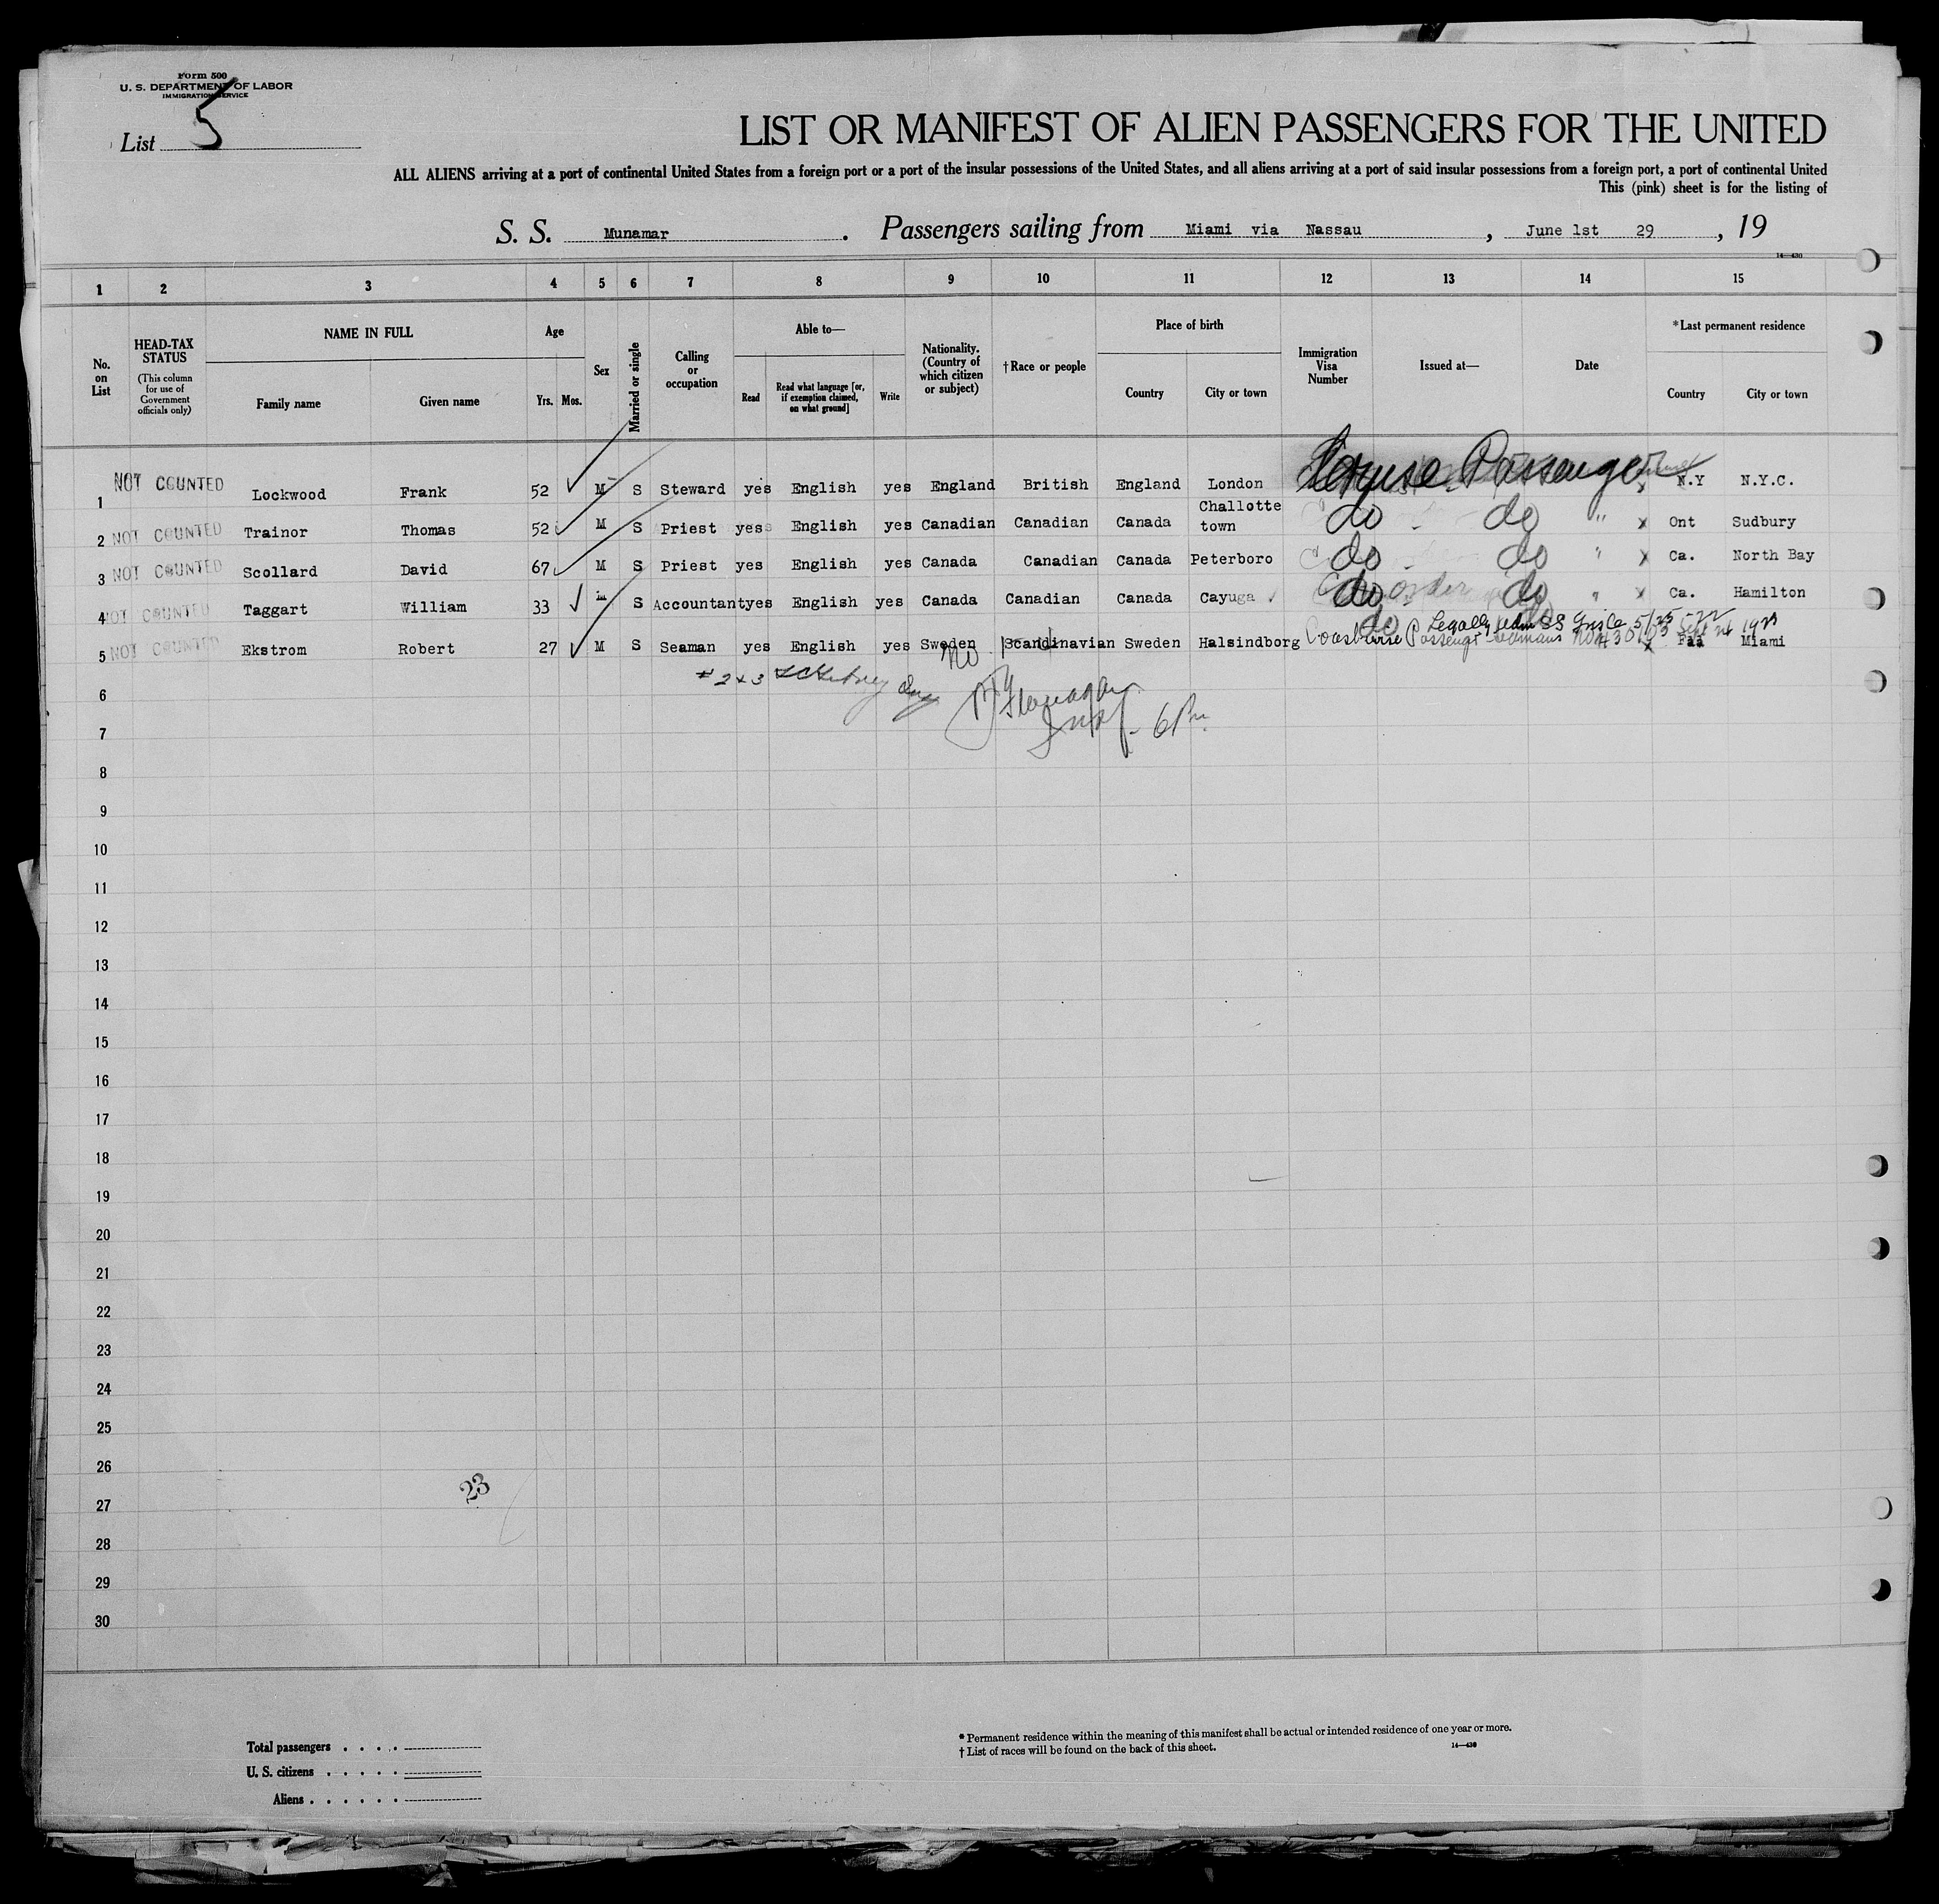 Form 500
U. S. DEPARTMENT OF LABOR
IMMIGRATION SERVICE
List 5
LIST OR MANIFEST OF ALIEN PASSENGERS FOR THE UNITED
ALL ALIENS arriving at a port of continental United States from a foreign port or a port of the insular possessions of the United States, and all aliens arriving at a port of said insular possessions from a foreign port, a port of continental United
This (pink) sheet is for the listing of
S. S. Munamar . Passengers sailing from Miami via Nassau , June 1st 29 , 19
14—430
1 2 3 4 5 6 7 8 9 10 11 12 13 14 15
No. on List
HEAD-TAX STATUS (This column for use of Government officials only)
NAME IN FULL
Family name Given name
Age
Yrs. Mos.
Sex
Married or single
Calling or occupation
Able to—
Read
Read what language [or, if exemption claimed, on what ground]
Write
Nationality. (Country of which citizen or subject)
†Race or people
Place of birth
Country City or town
Immigration Visa Number
Issued at—
Date
*Last permanent residence
Country City or town
1 NOT COUNTED Lockwood Frank 52 M S Steward yes English yes England British England London Cruise Passenger x N.Y N.Y.C.
2 NOT COUNTED Trainor Thomas 52 M S Priest yes English yes Canadian Canadian Canada Challotte town do do " x Ont Sudbury
3 NOT COUNTED Scollard David 67 M S Priest yes English yes Canada Canadian Canada Peterboro do do " x Ca. North Bay
4 NOT COUNTED Taggart William 33 m S Accountant yes English yes Canada Canadian Canada Cayuga do do " x Ca. Hamilton
do Legally adm SS
5 NOT COUNTED Ekstrom Robert 27 M S Seaman yes English yes Sweden Scandinavian Sweden Halsindborg Passengr x Faa Miami
No
# 2 + 3
Flanagan
Insp - 6 Pm
6
7
8
9
10
11
12
13
14
15
16
17
18
19
20
21
22
23
24
25
26
23
27
28
29
30
Total passengers . . . .
U. S. citizens . . . . .
Aliens . . . . . .
* Permanent residence within the meaning of this manifest shall be actual or intended residence of one year or more.
† List of races will be found on the back of this sheet.
14—430